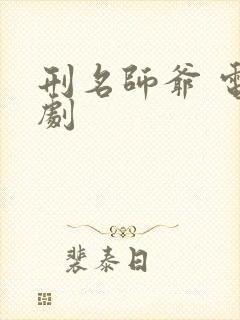 刑名師爺 電
劇
裴泰日